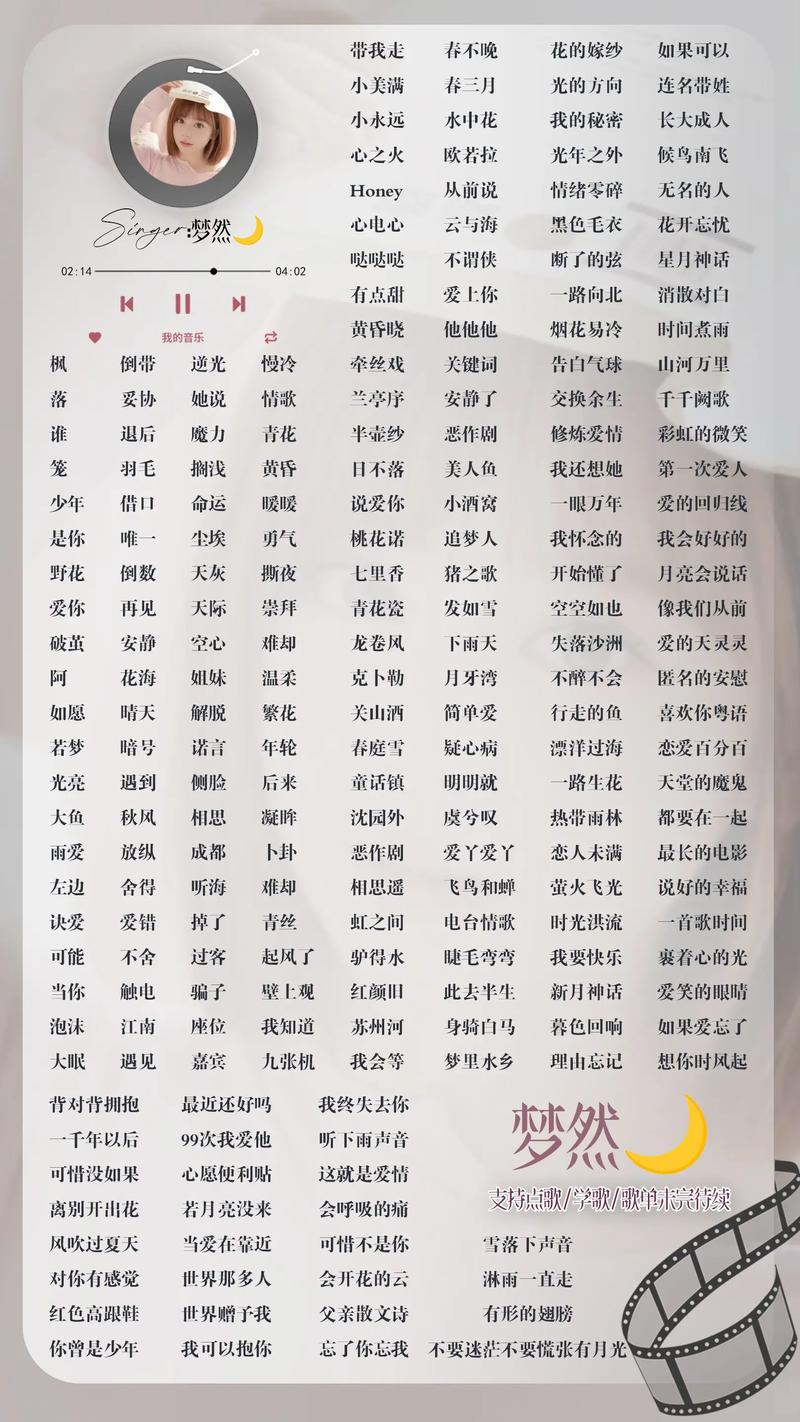 带我走 春不晚 花的嫁纱 如果可以
小美满 春三月 光的方向 连名带姓
小永远 水中花 我的秘密 长大成人
心之火 欧若拉 光年之外 候鸟南飞
Honey 从前说 情绪零碎 无名的人
心电心 云与海 黑色毛衣 花开忘忧
哒哒哒 不谓侠 断了的弦 星月神话
有点甜 爱上你 一路向北 消散对白
黄昏晓 他他他 烟花易冷 时间煮雨
Singer:梦然🌙
02:14 04:02
我的音乐
枫 倒带 逆光 慢冷 牵丝戏 关键词 告白气球 山河万里
落 妥协 她说 情歌 兰亭序 安静了 交换余生 千千阙歌
谁 退后 魔力 青花 半壶纱 恶作剧 修炼爱情 彩虹的微笑
笼 羽毛 搁浅 黄昏 日不落 美人鱼 我还想她 第一次爱人
少年 借口 命运 暖暖 说爱你 小酒窝 一眼万年 爱的回归线
是你 唯一 尘埃 勇气 桃花诺 追梦人 我怀念的 我会好好的
野花 倒数 天灰 撕夜 七里香 猪之歌 开始懂了 月亮会说话
爱你 再见 天际 崇拜 青花瓷 发如雪 空空如也 像我们从前
破茧 安静 空心 难却 龙卷风 下雨天 失落沙洲 爱的天灵灵
阿 花海 姐妹 温柔 克卜勒 月牙湾 不醉不会 匿名的安慰
如愿 晴天 解脱 繁花 关山酒 简单爱 行走的鱼 喜欢你粤语
若梦 暗号 诺言 年轮 春庭雪 疑心病 漂洋过海 恋爱百分百
光亮 遇到 侧脸 后来 童话镇 明明就 一路生花 天堂的魔鬼
大鱼 秋风 相思 凝眸 沈园外 虞兮叹 热带雨林 都要在一起
雨爱 放纵 成都 卜卦 恶作剧 爱丫爱丫 恋人未满 最长的电影
左边 舍得 听海 难却 相思遥 飞鸟和蝉 萤火飞光 说好的幸福
诀爱 爱错 掉了 青丝 虹之间 电台情歌 时光洪流 一首歌时间
可能 不舍 过客 起风了 驴得水 睫毛弯弯 我要快乐 裹着心的光
当你 触电 骗子 壁上观 红颜旧 此去半生 新月神话 爱笑的眼睛
泡沫 江南 座位 我知道 苏州河 身骑白马 暮色回响 如果爱忘了
大眠 遇见 嘉宾 九张机 我会等 梦里水乡 理由忘记 想你时风起
背对背拥抱 最近还好吗 我终失去你
一千年以后 99次我爱他 听下雨声音
可惜没如果 心愿便利贴 这就是爱情
离别开出花 若月亮没来 会呼吸的痛
梦然🌙
支持点歌/学歌/歌单未完待续
风吹过夏天 当爱在靠近 可惜不是你 雪落下声音
对你有感觉 世界那多人 会开花的云 淋雨一直走
红色高跟鞋 世界赠予我 父亲散文诗 有形的翅膀
你曾是少年 我可以抱你 忘了你忘我 不要迷茫不要慌张有月光